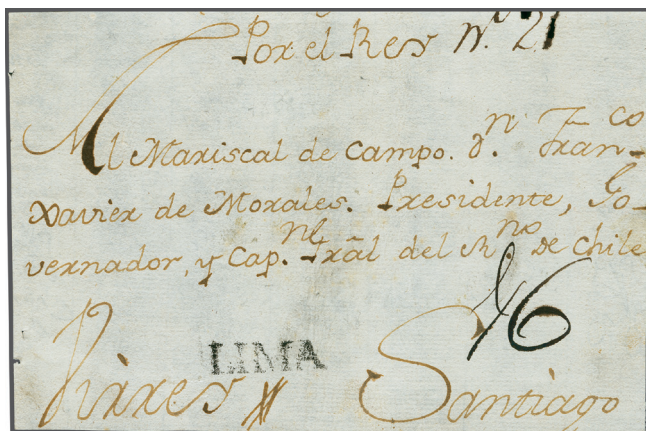 Por el Rey N.º 21
Al Mariscal de Campo. d.n Fran-co
Xavier de Morales. Presidente, Go-
vernador, y Cap.n Gral del R.no de Chile
46
LIMA
Santiago